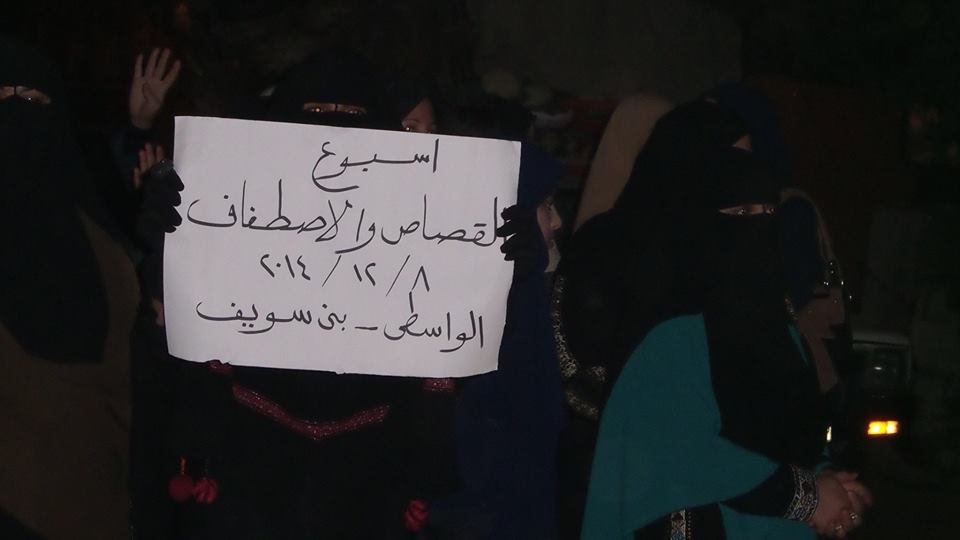 اسبوع
القصاص والاصطفاف
٨ / ١٢ / ٢٠١٤
الواسطى - بنى سويف